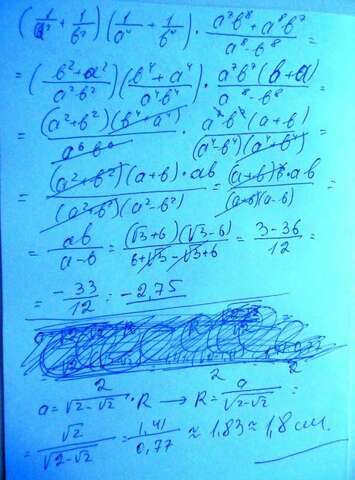 (1/a² + 1/b²)(1/a⁴ + 1/b⁴) · (a⁷b⁸ + a⁸b⁷)/(a⁸ - b⁸) =
= (b² + a²)/(a²b²) (b⁴ + a⁴)/(a⁴b⁴) · a⁷b⁷(b + a)/(a⁸ - b⁸) =
= (a² + b²)(b⁴ + a⁴)/(a⁶b⁶) · a⁷b⁷(a + b)/((a⁴ - b⁴)(a⁴ + b⁴)) =
= (a² + b²)(a + b) · ab/((a² + b²)(a² - b²)) = (a + b) · ab/((a + b)(a - b)) =
= ab/(a - b) = (√3 + 6)(√3 - 6)/(6 + √3 - √3 + 6) = (3 - 36)/12 =
= -33/12 = -2,75
a = 2/√(2 - √2) · R → R = a/√(2 - √2) =
= √2/√(2 - √2) = 1,41/0,77 ≈ 1,83 ≈ 1,8 см.